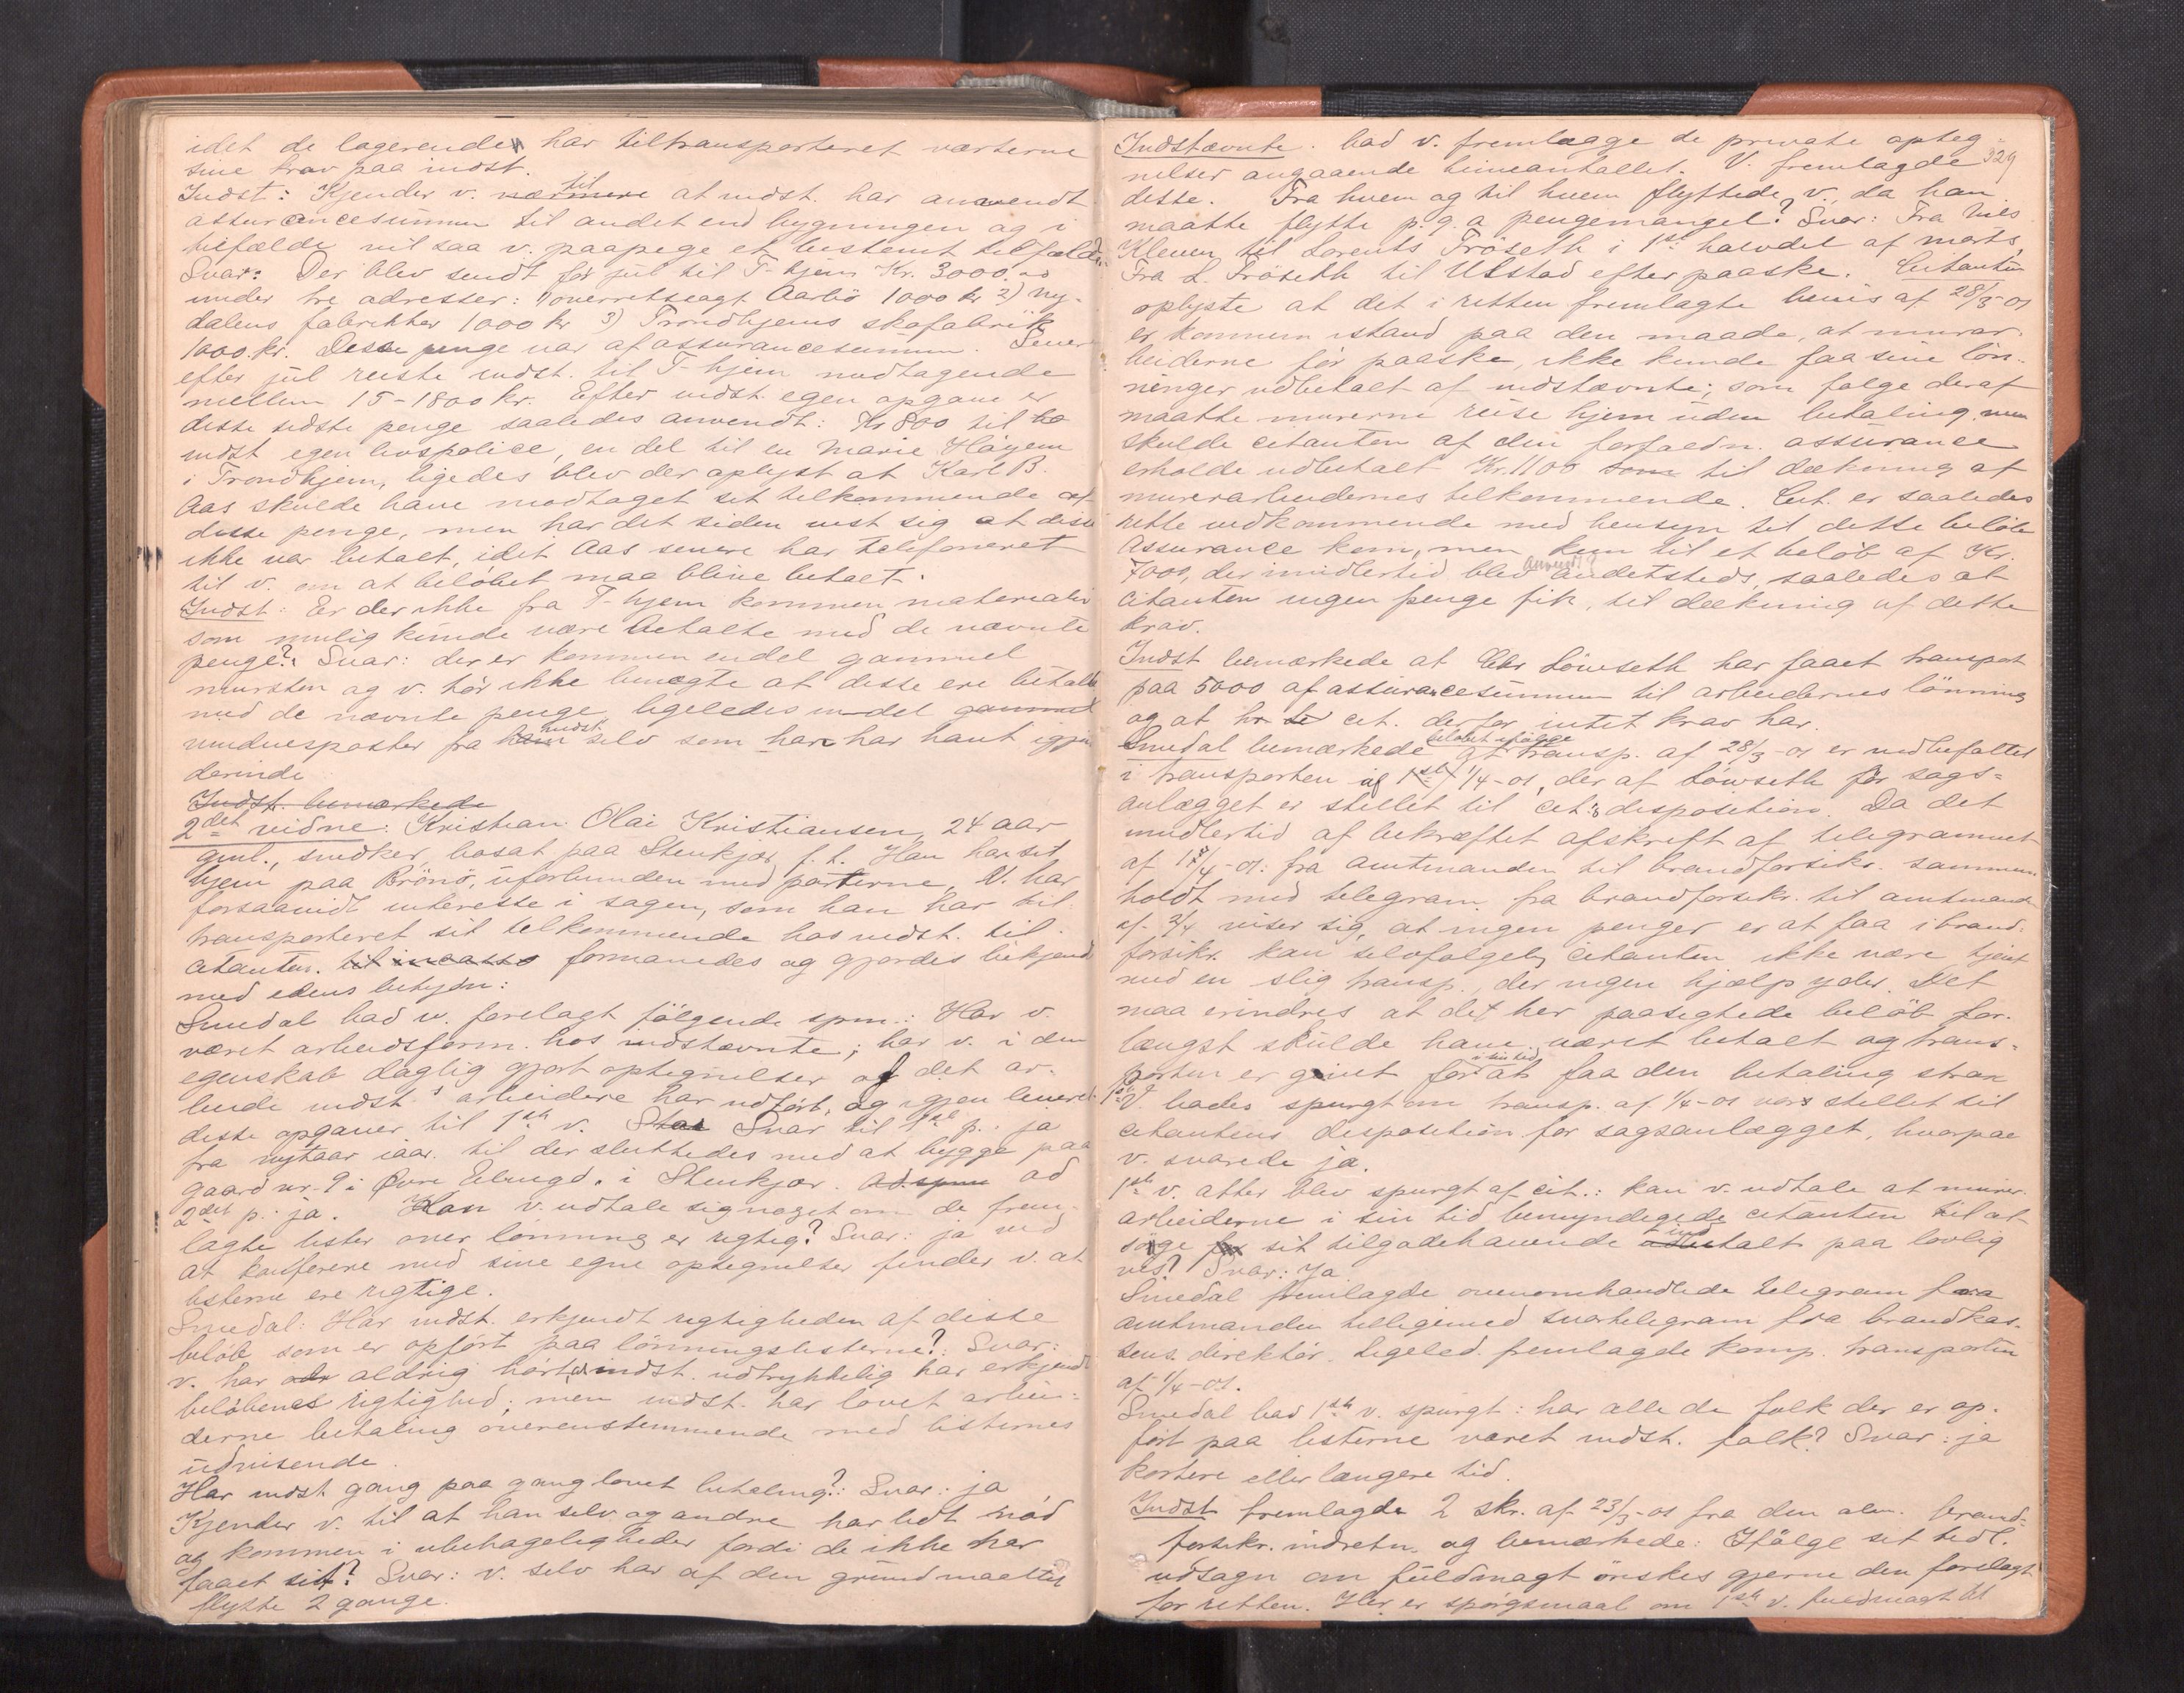 idet de logerende har tiltransporteret værterne
sine krav paa indst.
Indst: Kjender v. nærmere til at indst. har anvendt
assurancesummen til andet end bygningen og i
tilfælde vil saa v. paapege et bestemt tilfælde.
Svar: Der blev sendt før jul til T-hjem Kr. 3000.00
under tre adresser: 1) overretssagf. Aarbö 1000 kr 2) Ny-
dalens fabrikker 1000 kr 3) Trondhjems skofabrik
1000 kr. Disse penge var af assurancesummen. Sener
efter jul reiste indst. til T-hjem medtagende
mellem 15-1800 kr. Efter indst. egen opgave er
disse sidste penge saaledes anvendt: Kr 800 til
indst egen livspolice, en del til en Marie Høyem
i Trondhjem, ligedes blev der oplyst at Karl B.
Aas skulde have modtaget sit tilkommende af
disse penge, men har det siden vist sig at disse
ikke var betalt, idet Aas senere har telefoneret
til v. om at beløbet maa blive betalt.
Indst: Er der ikke fra T-hjem kommen materialer
som mulig kunde være betalte med de nævnte
penge? Svar: der er kommen endel gammel
mursten og v. tør ikke benægte at disse ere betalte
med de nævnte penge ligeledes endel gammel
vinduesposter fra ham indst. selv som han har havt igjen
derinde
Indst. bemærkede
2det vidne: Kristian Olai Kristiansen, 24 aar
gml., snedker, bosat paa Stenkjær f. t. Han har sit
hjem paa Brönö, uforbunden med parterne, V. har
forsaavidt interesse i sagen, som han har til
transporteret sit tilkommende hos indst. til
citanten. til incasso formanedes og gjordes bekjendt
med edens betydn:
Smedal bad v. forelagt følgende spm.: Har v.
været arbeidsform. hos indstævnte; har v. i den
egenskab daglig gjort optegnelser af det ar-
beide indst.s arbeidere har udført, og igjen leveret
disse opgaver til 1ste v. Svar til 1ste p.: ja
fra nytaar iaar til der sluttedes med at bygge paa
gaard nr. 9 i Øvre Elvegd. i Stenkjær. Ad spm ad
2det p. ja. Kan v. udtale sig noget om de frem-
lagte lister over lønning er rigtig? Svar: ja ved
at konferere med sine egne optegnelser finder v. at
listerne ere rigtige.
Smedal: Har indst. erkjendt rigtigheden af disse
beløb som er opført paa lønningslisterne?: Svar:
v. har aldrig hørt at indst. udtrykkelig har erkjendt
beløbenes rigtighed; men indst. har lovet arbei-
derne betaling overensstemmende med listernes
udvisende.
Har indst. gang paa gang lovet betaling?: Svar: ja
Kjender v. til at han selv og andre har lidt nød
og kommen i ubehageligheder fordi de ikke har
faaet sit? Svar: v. selv har af den grund maattet
flytte 2 gange.
329
Indstævnte. bad v. fremlægge de private opteg-
nelser angaaende timeantallet. V. fremlagde
dette. Fra hvem og til hvem flyttede v., da han
maatte flytte p. g. a pengemangel? Svar: Fra Nils
Kleven til Lorents Fröseth i 1ste halvdel af marts,
Fra L. Fröseth til Ulstad efter paaske. Citanten
oplyste at det i retten fremlagte bevis af 28/3-01
er kommen istand paa den maade, at murar-
beiderne før paaske, ikke kunde faa sine løn-
ninger udbetalt af indstævnte; som følge deraf
maatte murerne reise hjem uden betaling men
skulde citanten af den forfaldn. assurance
erholde udbetalt Kr. 1100 som til dækning af
murerarbeidernes tilkommende. Cit. er saaledes
rette vedkommende med hensyn til dette beløb
Assurance kom, men kun til et beløb af Kr.
7000, der imidlertid blev anvendt andetsteds, saaledes at
citanten ingen penge fik, til dækning af dette
krav.
Indst bemærkede at Chr Lövseth har faaet transport
paa 5000 af assurancesummen til arbeidernes lønning
og at cit. derfor intet krav har.
Smedal bemærkede at transp. af 28/3-01 er indbefattet
i transporten af 1/4-01, der af Lövseth før sags-
anlægget er stillet til cit.s disposition. Da det
imidlertid af bekræftet afskrift af telegrammet
fra amtmanden til brandforsikr. sammen-
holdt med telegram fra brandforsikr. til amtmanden
viser sig, at ingen penger er at faa i brand-
forsikr. kan selvfølgelig citanten ikke være tjent
med en slig transp., der ingen hjælp yder. Det
maa erindres at det her paasigtede beløb for-
længst skulde have været betalt og trans-
porten er givet i sin tid for at faa den betaling strax
1ste V. bades spurgt om transp. af 1/4-01 var stillet til
citantens disposition før sagsanlægget, hvorpaa
v. svarede ja.
1ste v. atter blev spurgt af cit.: kan v. udtale at murer-
arbeiderne i sin tid bemyndigede citanten til at
søge sit tilgodehavende indbetalt paa lovlig
vis? Svar: Ja
Smedal fremlagde ovenomhandlede telegram fra
amtmanden tilligemed svartelegram fra brandkas-
sens direktør. Ligeled. fremlagde komp. transporten
af 1/4-01.
Smedal bad 1ste v. spurgt: har alle de folk der er op-
ført paa listerne været indst. folk? Svar: ja
kortere eller længere tid.
Indst fremlagde 2 skr. af 23/3-01 fra den alm. brand-
forsikr. indretn. og bemærkede: Ifølge sit tidl.
udsagn om fuldmagt ønskes gjerne den forelagt
for retten. Her er spørgsmaal om 1ste v. fuldmagt til